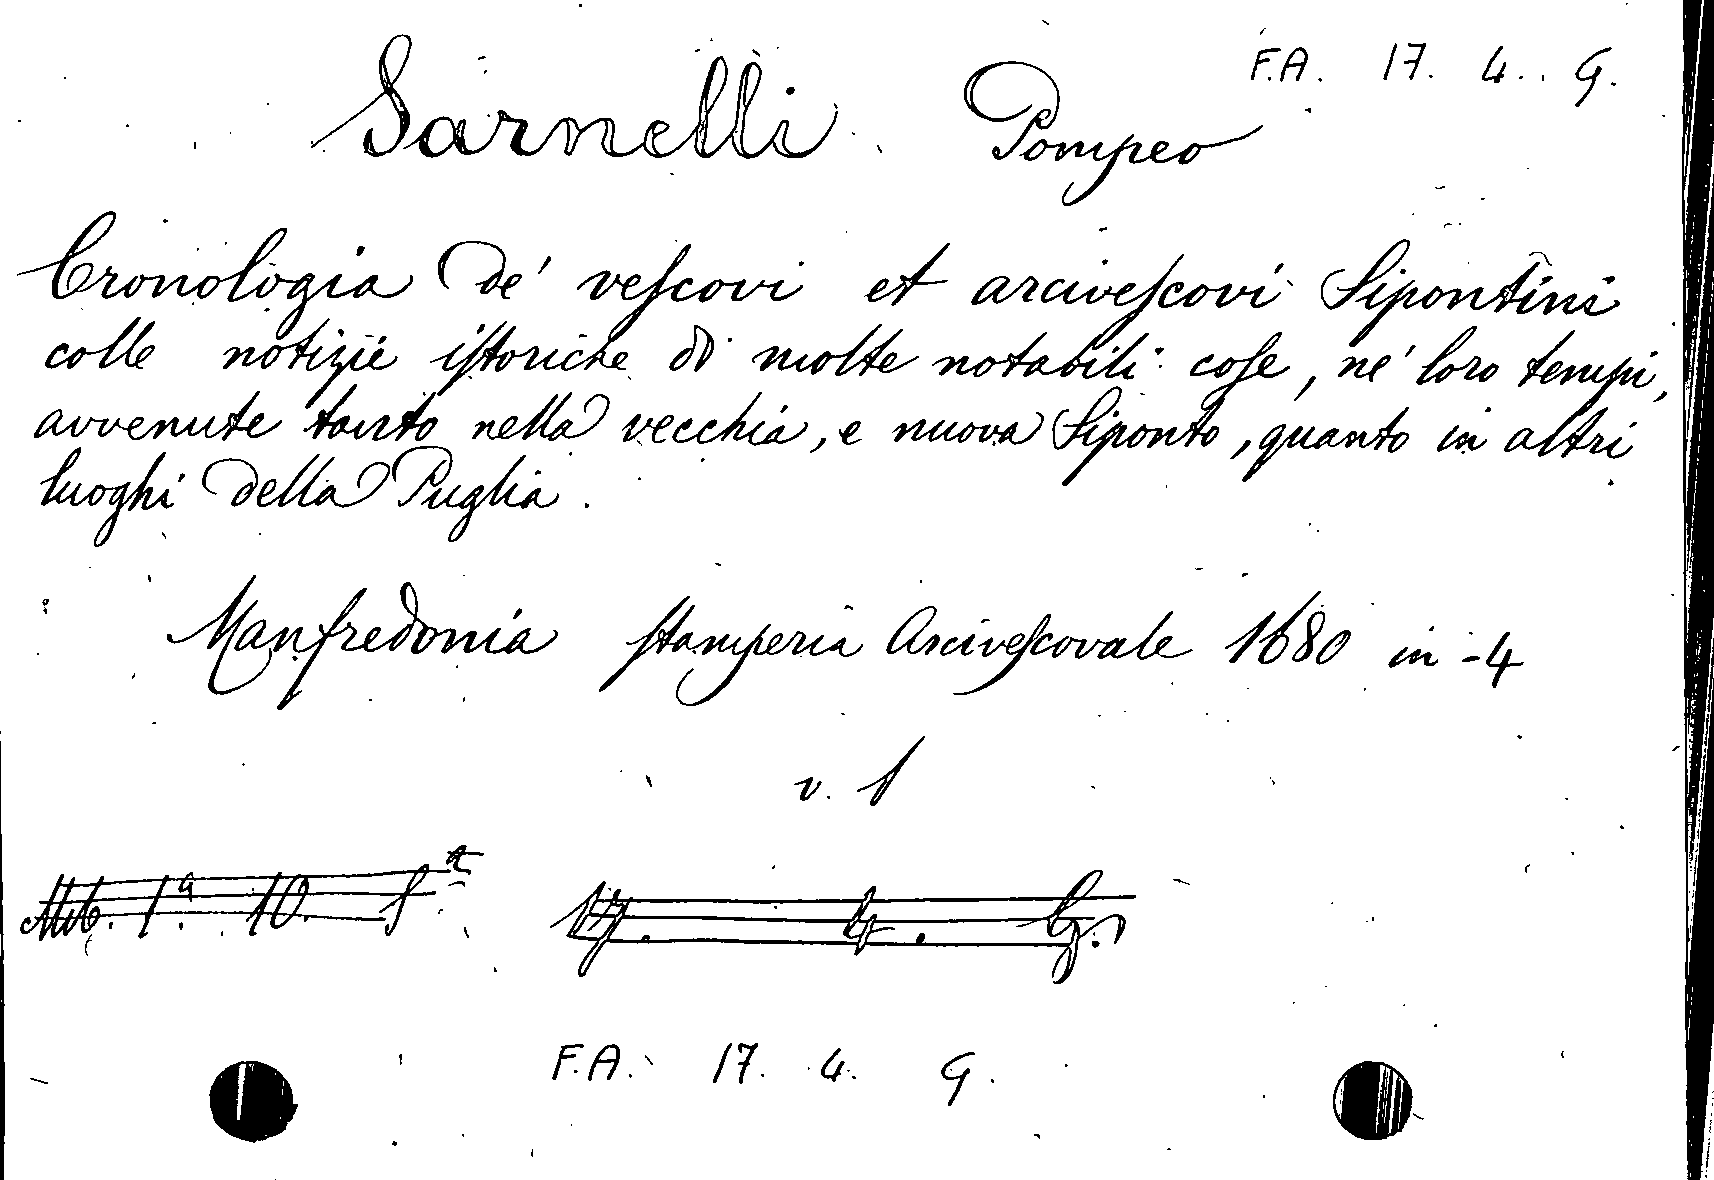 F.A. 17. 4. G.
Sarnelli Pompeo
Cronologia de' vescovi et arcivescovi Sipontini
colle notizie istoriche di molte notabili cose, ne' loro tempi,
avvenute tanto nella vecchia, e nuova Siponto, quanto in altri
luoghi della Puglia.
Manfredonia stamperia Arcivescovale 1680 in-4
v. 1
1ª 10.
17. 4. G.
F.A. 17. 4. G.